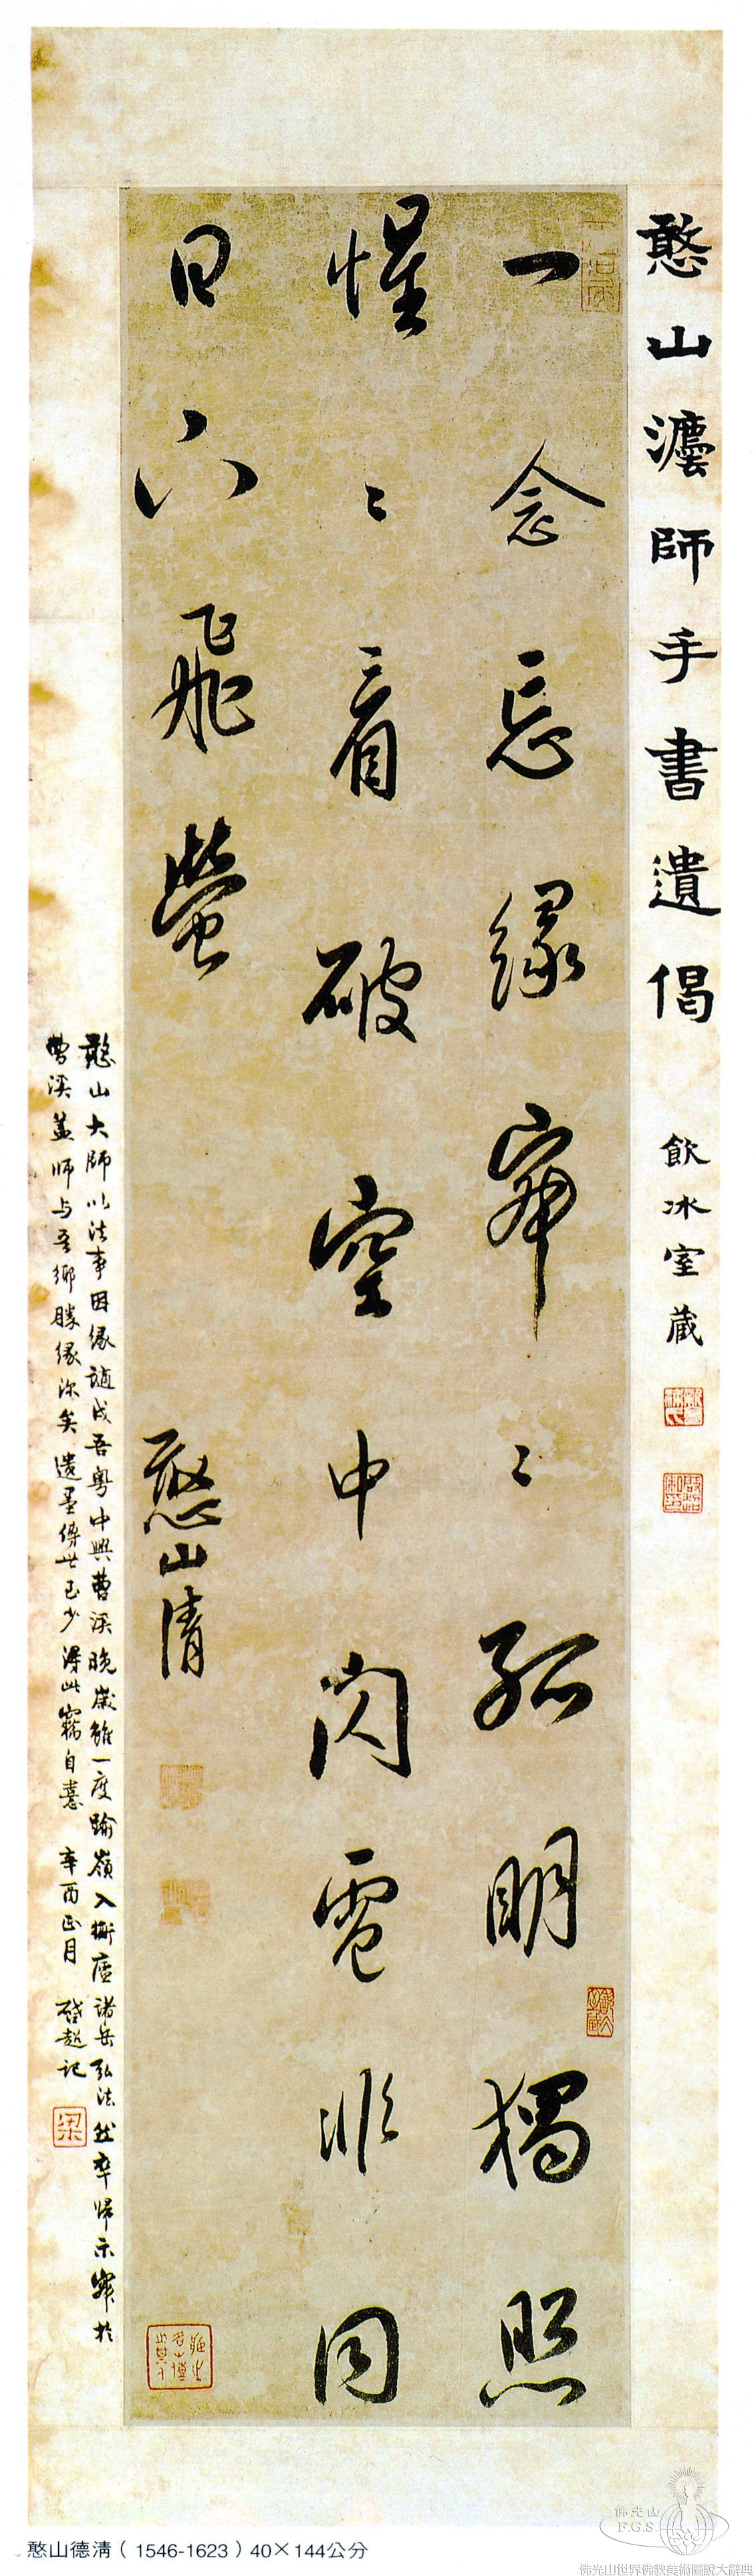 憨山灋師手書遺偈 飲冰室藏
一念忘緣寂〻孤明獨照
惺〻看破空中閃電非同
日下飛螢
憨山清
憨山大師以法事因緣謫戍吾粵中興曹溪晚歲雖一度踰嶺入衡廬諸岳弘法然卒歸示寂於
曹溪蓋師与吾鄉勝緣深矣遺墨傳世已少得此竊自憙 辛酉正月 啓超記
梁
憨山德清（1546-1623）40×144公分
佛光山
F.G.S.
佛光山世界佛教美術圖說大辭典